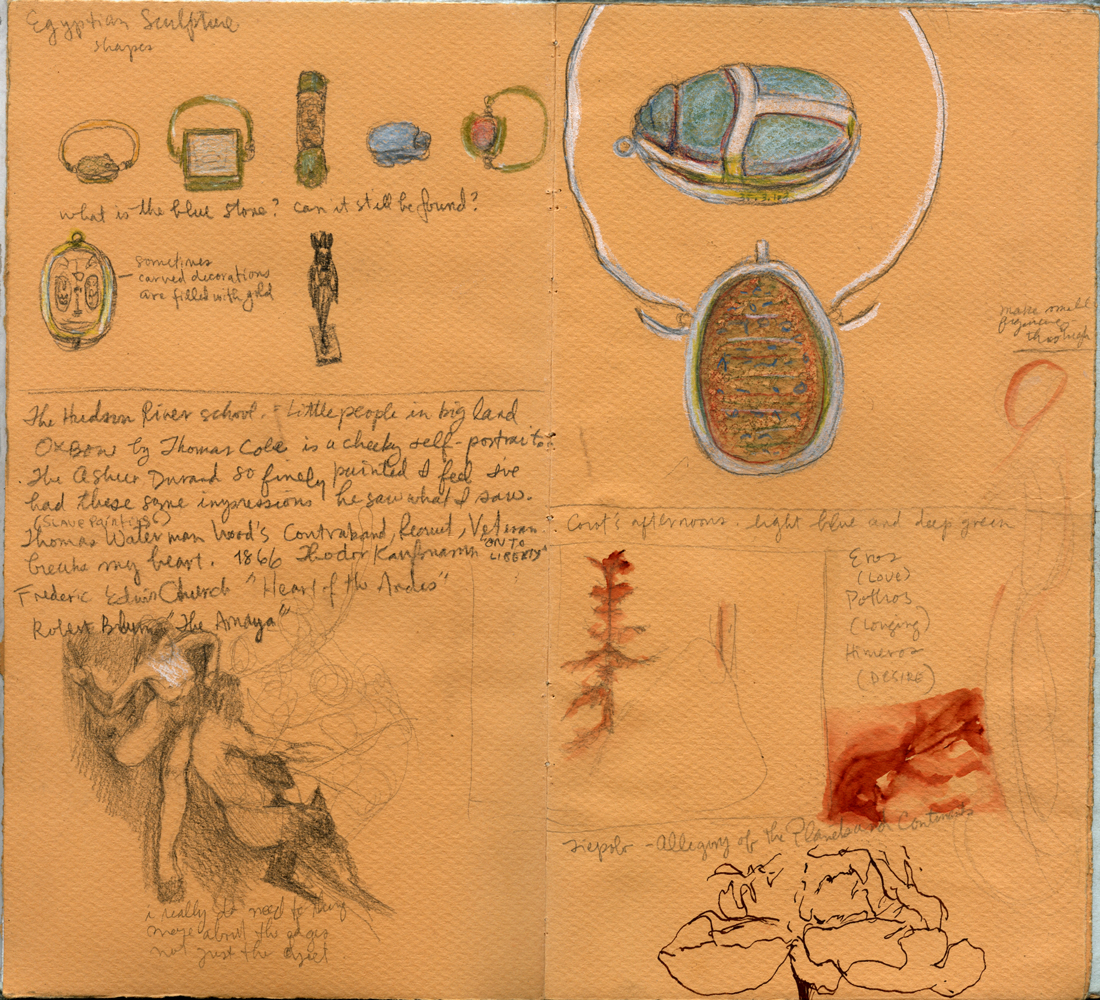 Egyptian Sculpture
shapes
what is the blue stone? can it still be found?
sometimes
carved decorations
are filled with gold
The Hudson River school. - Little people in big land
OXBOW by Thomas Cole is a cheeky self-portrait.
The Asher Durand so finely painted I feel I've
had these same impressions he saw what I saw.
(SLAVE PAINTINGS)
Thomas Waterman Wood's Contraband, Recruit, Veteran
breaks my heart. 1866 Theodor Kaufmann "ON TO LIBERTY"
Frederic Edwin Church "Heart of the Andes"
Robert Blum "The Amaya"
i really do need to
more about the pages
not just the object.
make small
through
Corot's afternoons light blue and deep green
Eros
(LOVE)
Pothos
(Longing)
Himeros
(DESIRE)
Tiepolo - Allegory of the Planets and Continents